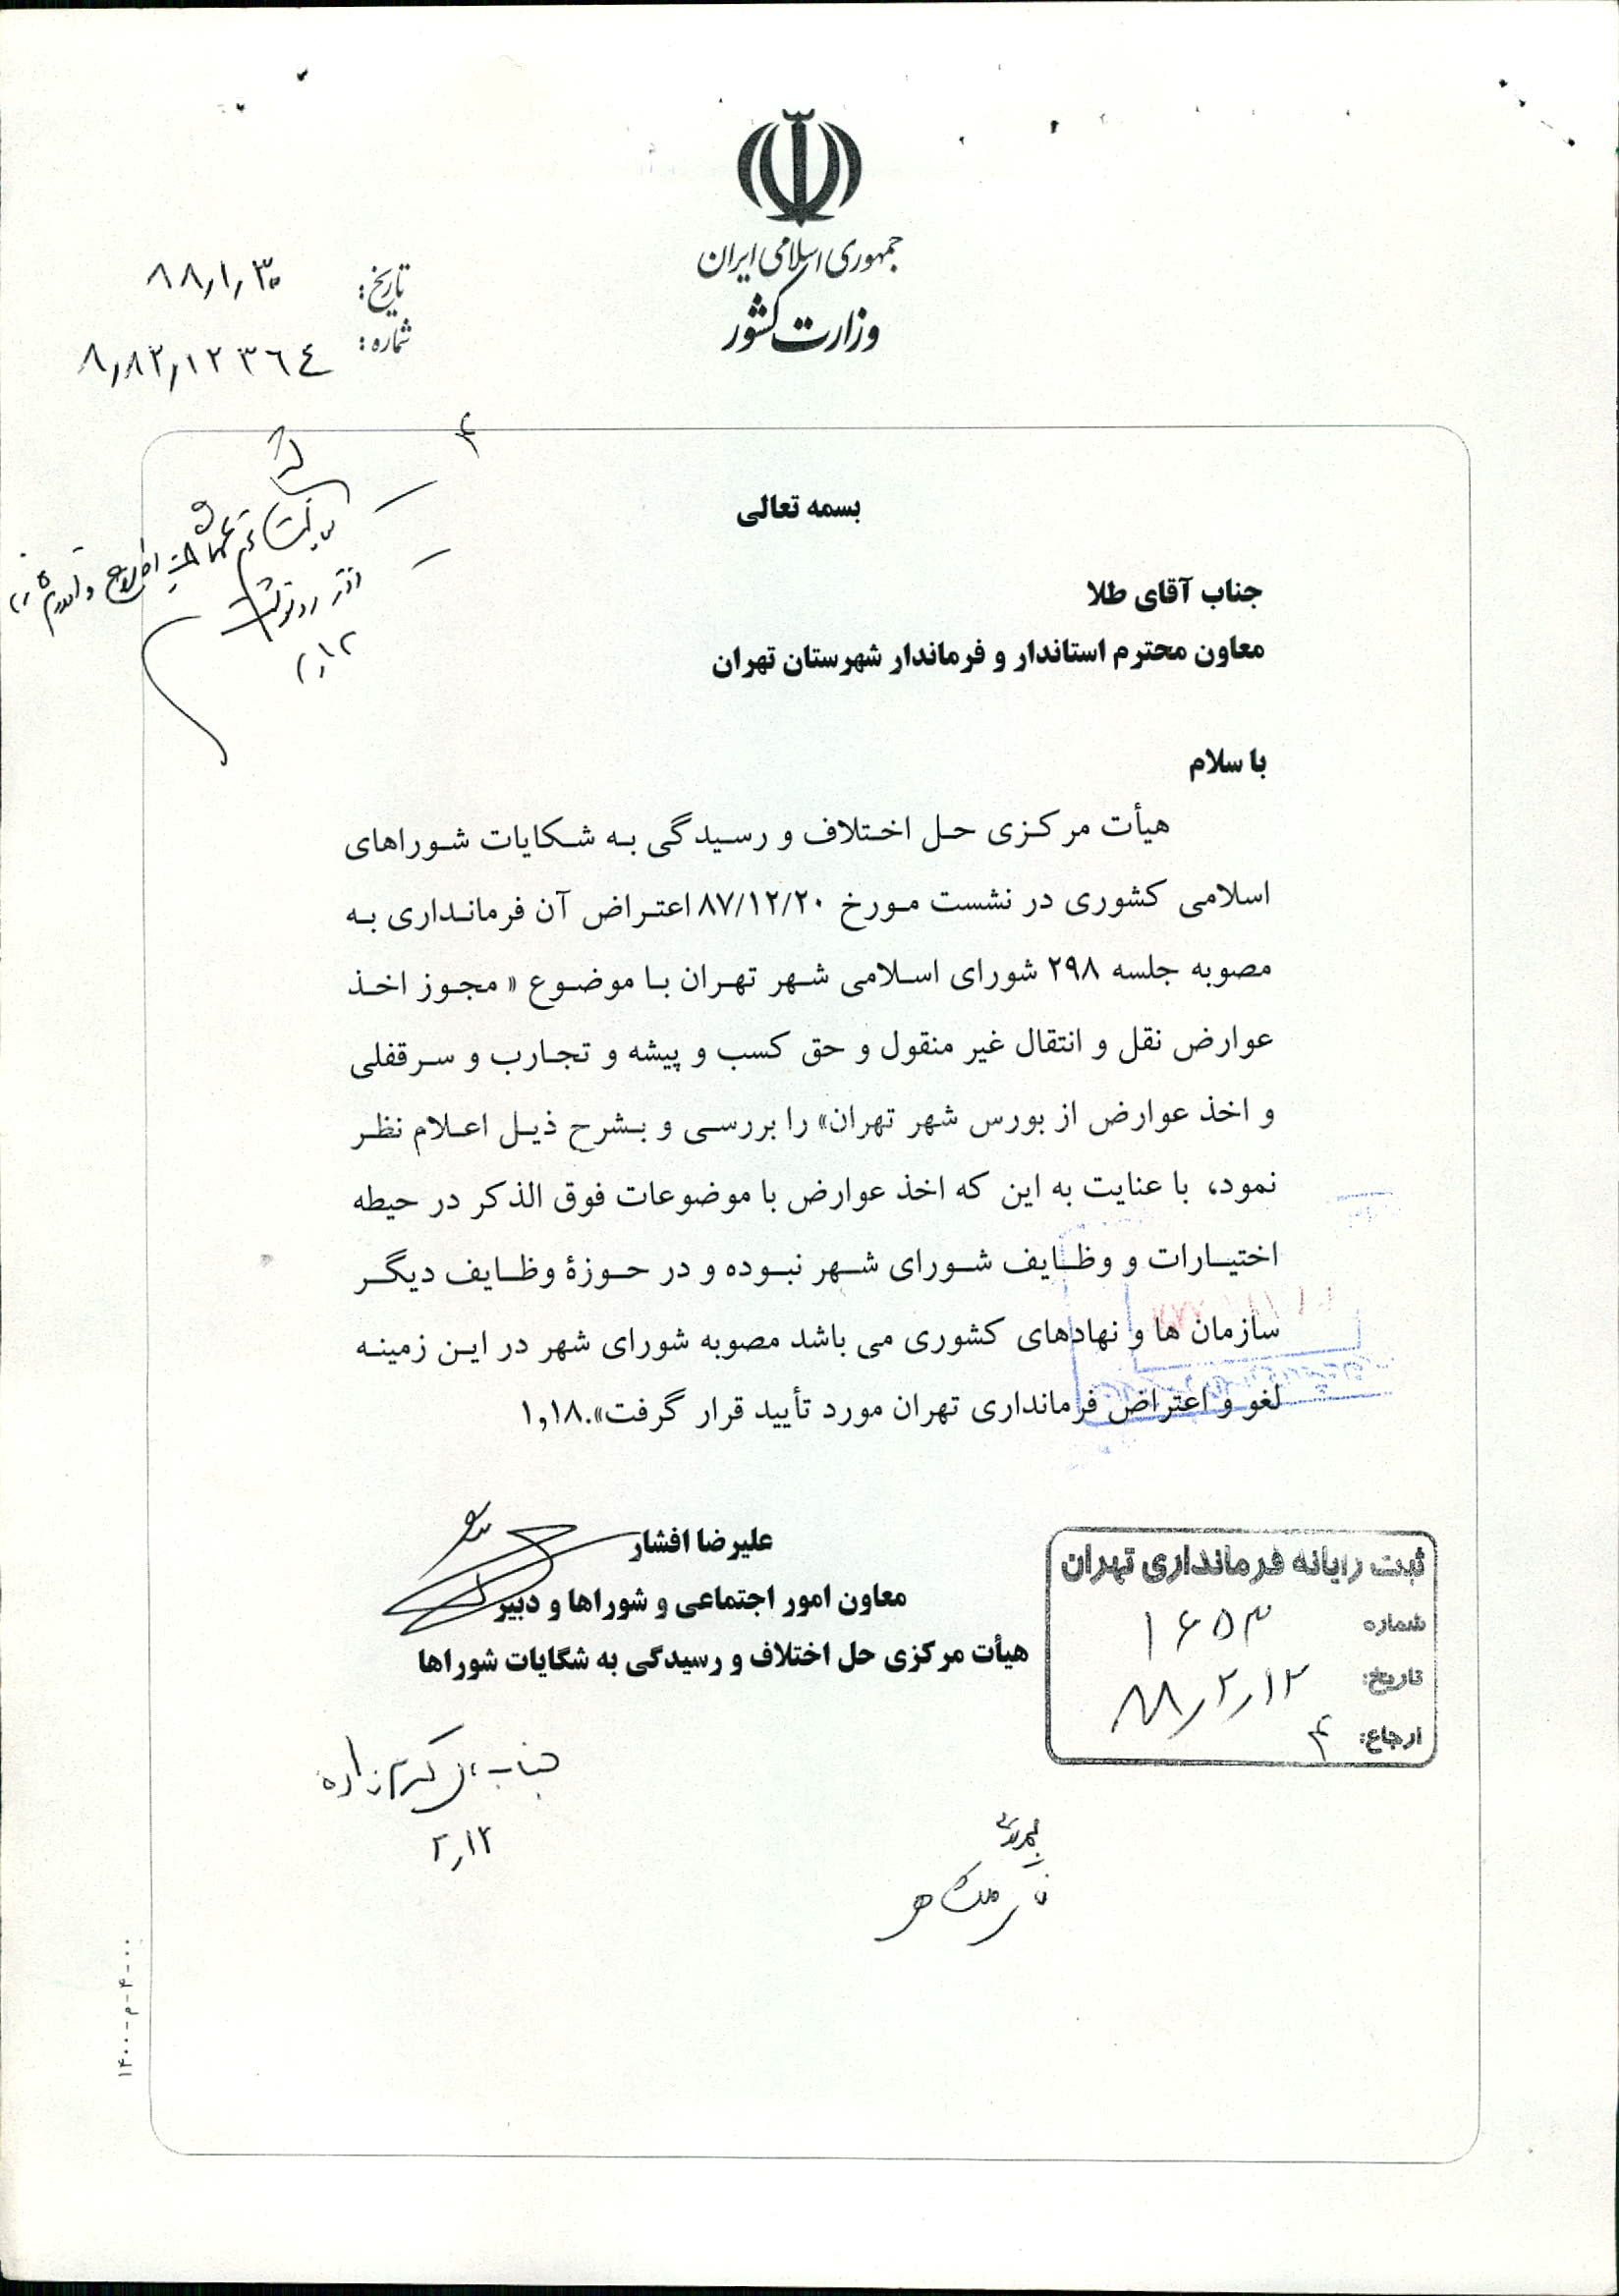 جمهوری اسلامی ایران
وزارت کشور
تاریخ: ۸۸٫۱٫۳۰
شماره: ۸٫۸۲٫۱۲۳۶۴
بسمه تعالی
جناب آقای طلا
معاون محترم استاندار و فرماندار شهرستان تهران
با سلام
هیأت مرکزی حل اختلاف و رسیدگی به شکایات شوراهای
اسلامی کشوری در نشست مورخ ۸۷/۱۲/۲۰ اعتراض آن فرمانداری به
مصوبه جلسه ۲۹۸ شورای اسلامی شهر تهران با موضوع « مجوز اخذ
عوارض نقل و انتقال غیر منقول و حق کسب و پیشه و تجارب و سرقفلی
و اخذ عوارض از بورس شهر تهران» را بررسی و بشرح ذیل اعلام نظر
نمود، با عنایت به این که اخذ عوارض با موضوعات فوق الذکر در حیطه
اختیارات و وظایف شورای شهر نبوده و در حوزۀ وظایف دیگر
سازمان ها و نهادهای کشوری می باشد مصوبه شورای شهر در این زمینه
لغو و اعتراض فرمانداری تهران مورد تأیید قرار گرفت».۱٫۱۸
علیرضا افشار
معاون امور اجتماعی و شوراها و دبیر
هیأت مرکزی حل اختلاف و رسیدگی به شگایات شوراها
ثبت رایانه فرمانداری تهران
شماره ۱۶۵۳
تاریخ: ۸۸٫۲٫۱۲
ارجاع: ۴
جناب کرم زاده
۲٫۱۲
۱۴۰۰-م-۴-۰۰